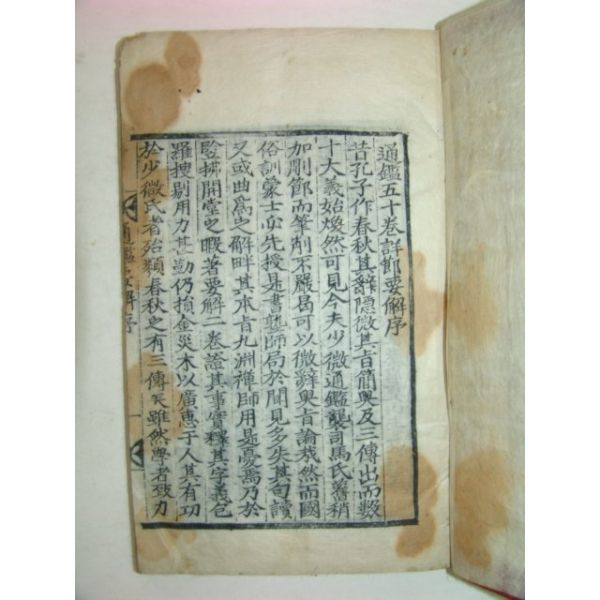 通鑑五十卷詳節要解序
昔孔子作春秋其辭隱微其旨簡奧及三傳出而數
十大義始煥然可見今夫少微通鑑襲司馬氏舊稍
加刪節而筆削不嚴曷可以微辭奧旨論哉然而國
俗訓蒙士必先授是書塾師局於聞見多失其句讀
又或曲爲之解畔其本旨九淵禪師用是憂焉乃於
竪拂開堂之暇著要解一卷證其事實釋其字義包
羅搜剔用力甚勤仍損金災木以廣惠于人其有功
於少微氏者殆類春秋之有三傳矣雖然學者致力
通鑑要解序
一